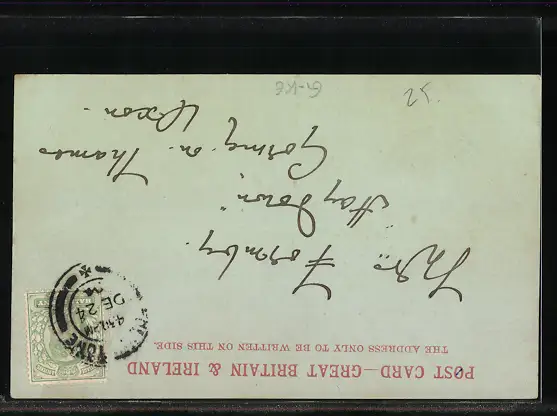 POST CARD — GREAT BRITAIN & IRELAND
THE ADDRESS ONLY TO BE WRITTEN ON THIS SIDE.
Mrs. Formby.
"Haydown"
Goring. on. Thames
Oxon.
DE 24
52